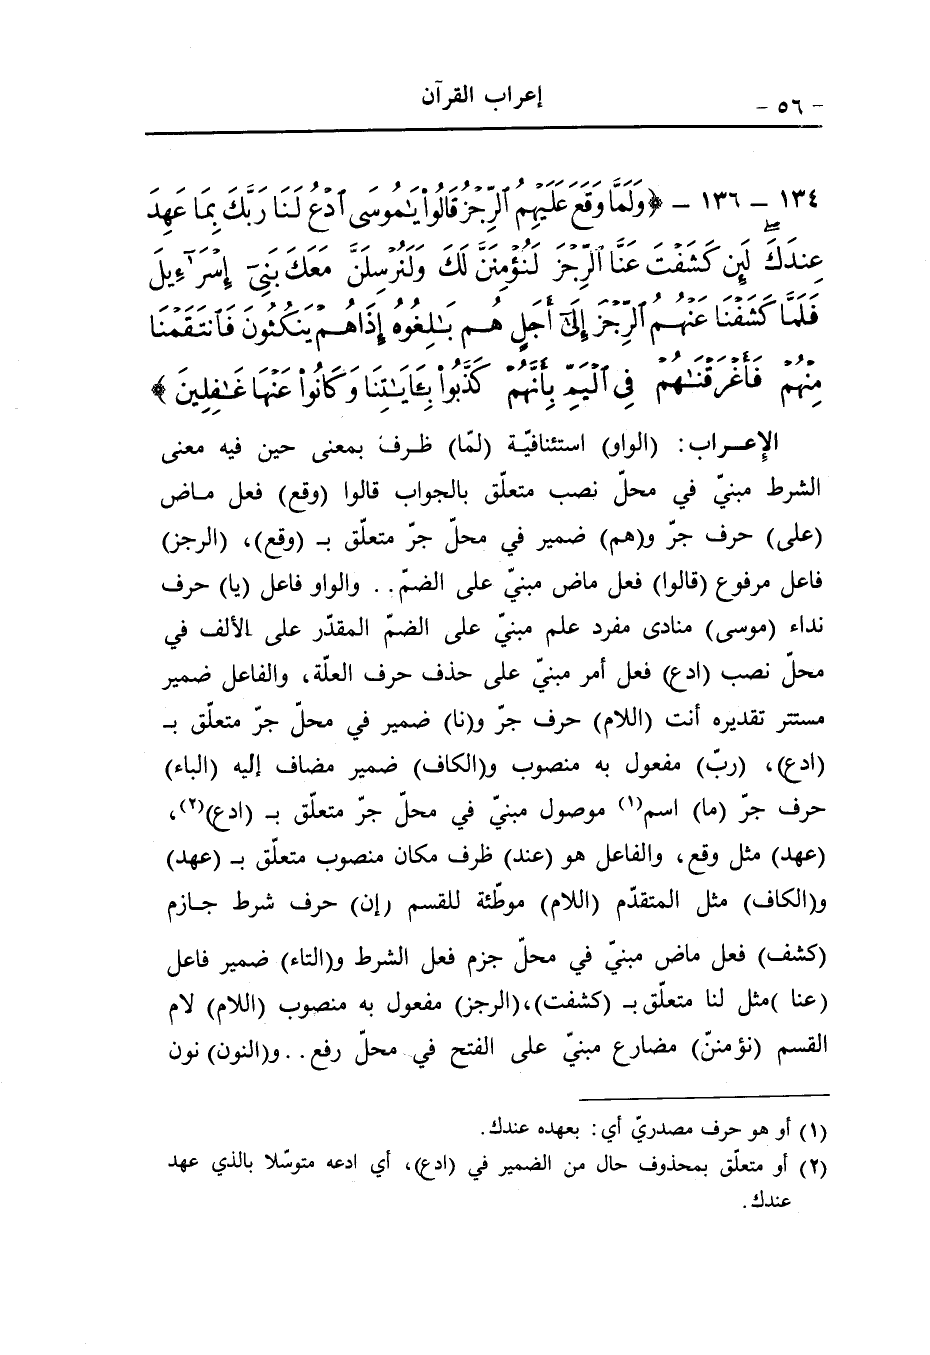 إعراب القرآن
- ٥٦ -
١٣٤ - ١٣٦ - ﴿ وَلَمَّا وَقَعَ عَلَيْهِمُ ٱلرِّجْزُ قَالُوا۟ يَـٰمُوسَى ٱدْعُ لَنَا رَبَّكَ بِمَا عَهِدَ
عِندَكَ ۖ لَئِن كَشَفْتَ عَنَّا ٱلرِّجْزَ لَنُؤْمِنَنَّ لَكَ وَلَنُرْسِلَنَّ مَعَكَ بَنِىٓ إِسْرَٰٓءِيلَ
فَلَمَّا كَشَفْنَا عَنْهُمُ ٱلرِّجْزَ إِلَىٰٓ أَجَلٍ هُم بَـٰلِغُوهُ إِذَا هُمْ يَنكُثُونَ فَٱنتَقَمْنَا
مِنْهُمْ فَأَغْرَقْنَـٰهُمْ فِى ٱلْيَمِّ بِأَنَّهُمْ كَذَّبُوا۟ بِـَٔايَـٰتِنَا وَكَانُوا۟ عَنْهَا غَـٰفِلِينَ ﴾
الإعـراب : (الواو) استئنافيّة (لمّا) ظـرف بمعنى حين فيه معنى
الشرط مبنيّ في محلّ نصب متعلّق بالجواب قالوا (وقع) فعل مـاض
(على) حرف جرّ و(هم) ضمير في محلّ جرّ متعلّق بـ (وقع)، (الرجز)
فاعل مرفوع (قالوا) فعل ماض مبنيّ على الضمّ . . والواو فاعل (يا) حرف
نداء (موسى) منادى مفرد علم مبنيّ على الضمّ المقدّر على الألف في
محلّ نصب (ادع) فعل أمر مبنيّ على حذف حرف العلّة، والفاعل ضمير
مستتر تقديره أنت (اللام) حرف جرّ و(نا) ضمير في محلّ جرّ متعلّق بـ
(ادع)، (ربّ) مفعول به منصوب و(الكاف) ضمير مضاف إليه (الباء)
حرف جرّ (ما) اسم(١) موصول مبنيّ في محلّ جرّ متعلّق بـ (ادع)(٢)،
(عهد) مثل وقع، والفاعل هو (عند) ظرف مكان منصوب متعلّق بـ (عهد)
و(الكاف) مثل المتقدّم (اللام) موطّئة للقسم (إن) حرف شرط جـازم
(كشف) فعل ماض مبنيّ في محلّ جزم فعل الشرط و(التاء) ضمير فاعل
(عنا )مثل لنا متعلّق بـ (كشفت)،(الرجز) مفعول به منصوب (اللام) لام
القسم (نؤمننّ) مضارع مبنيّ على الفتح في محلّ رفع . . و(النون) نون
(١) أو هو حرف مصدريّ أي : بعهده عندك .
(٢) أو متعلّق بمحذوف حال من الضمير في (ادع)، أي ادعه متوسّلا بالذي عهد
عندك .